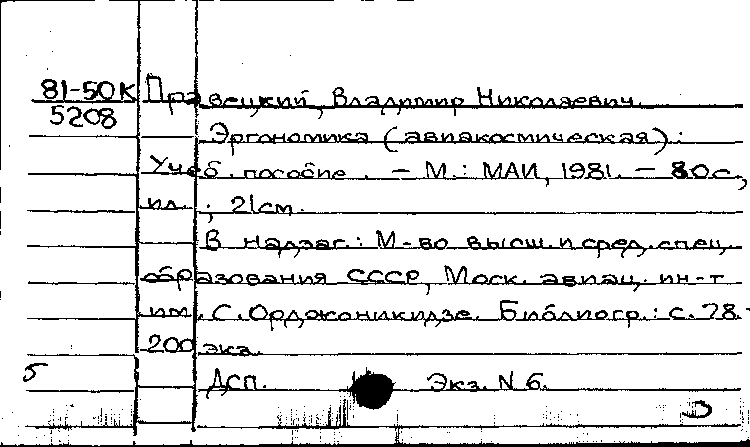 81-50К Правецкий, Владимир Николаевич.
5208
Эргономика (авиакосмическая):
Учеб. пособие. - М.: МАИ, 1981. - 80 с.,
ил.; 21 см.
В надзаг.: М-во высш. и сред. спец.
образования СССР, Моск. авиац. ин-т
им. С. Орджоникидзе. Библиогр.: с. 78.-
200 экз.
5 Дсп. Экз. N 6.